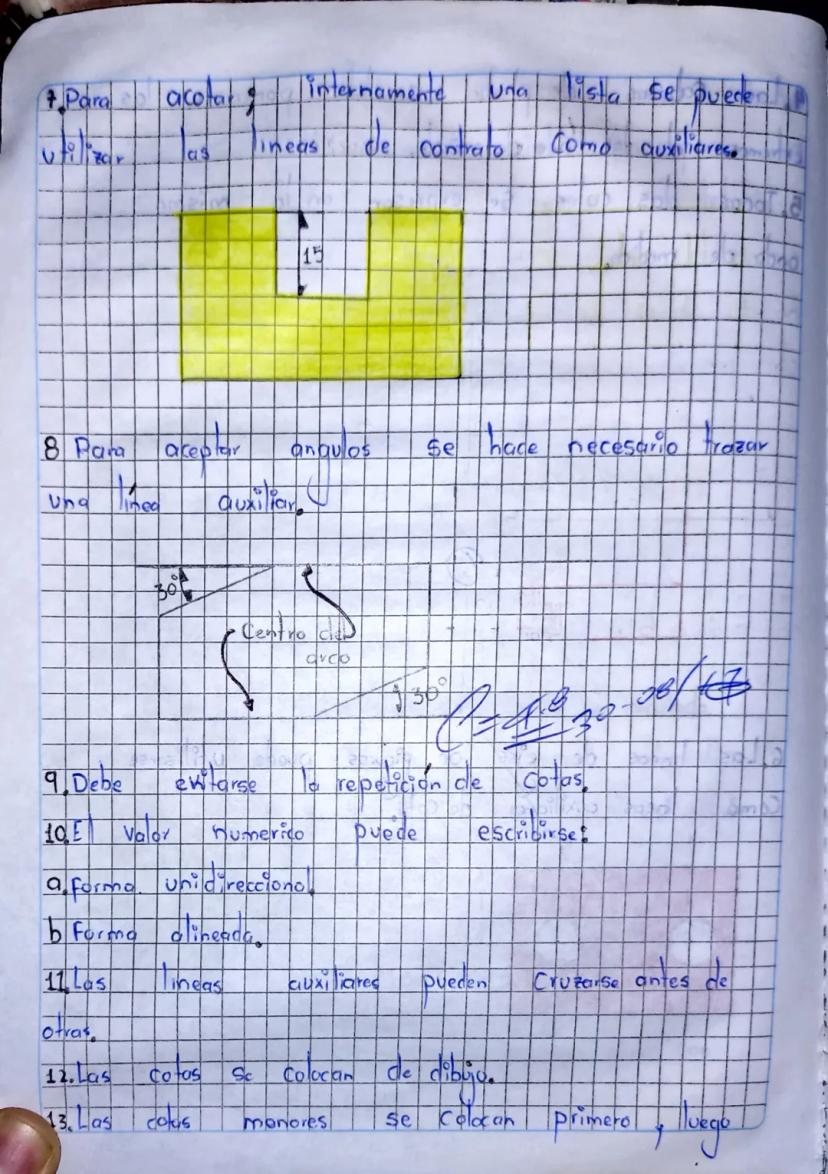 7. Para acotar; internamente una lista se puede
utilizar las lineas de contrato como auxiliares.
15
8 Para aceptar angulos se hace necesario trazar
una línea auxiliar.
30°
Centro del
arco
30°
9. Debe evitarse la repetición de cotas.
10. El valor numerico puede escribirse:
a. forma unidireccional
b Forma alineada.
11. Las lineas auxiliares pueden cruzarse antes de
otras.
12. Las cotas se colocan de dibujo.
13. Las cotas menores se colocan primero y luego